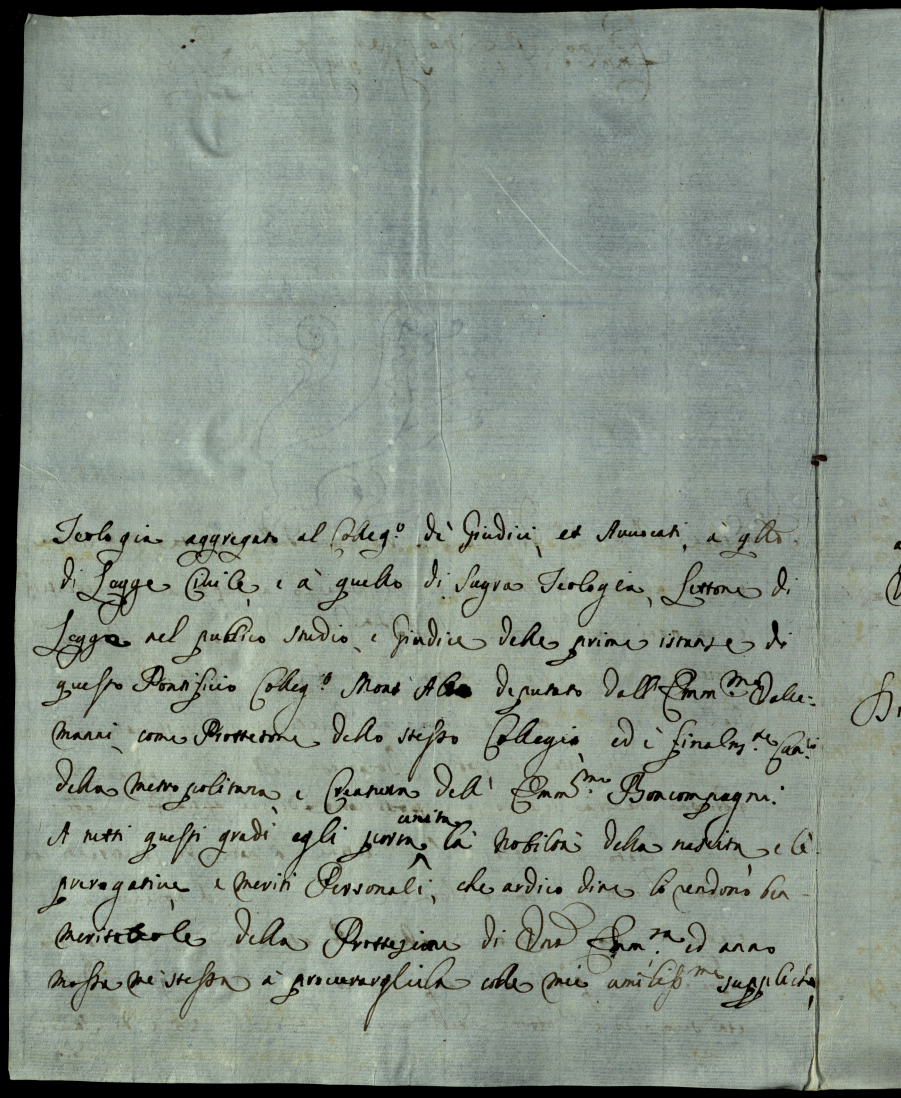 Teologia aggregato al Colleg.º de' Giudici, et Auuocati, a q.llo
di Legge Ciuile, e à quello di Sagra Teologia, Lettore di
Legge nel publico studio, e Giudice delle prime istanze di
questo Pontificio Colleg.º Mont' Alto deputato dall' Emm.mo Dalle=
manni come Protettore dello stesso Collegio, ed è finalm.te Can.co
della metropolitana, e Creatura dell' Emm.mo Boncompagni.
A tutti questi gradi egli porta unita la nobiltà della nascita, e le
prerogatiue e meriti Personali, che ardico dire lo rendono ben
meriteuole della Protezione di Vra Emm.za ed anno
mossa me stessa à procurargliela colle mie umiliss.me suppliche,